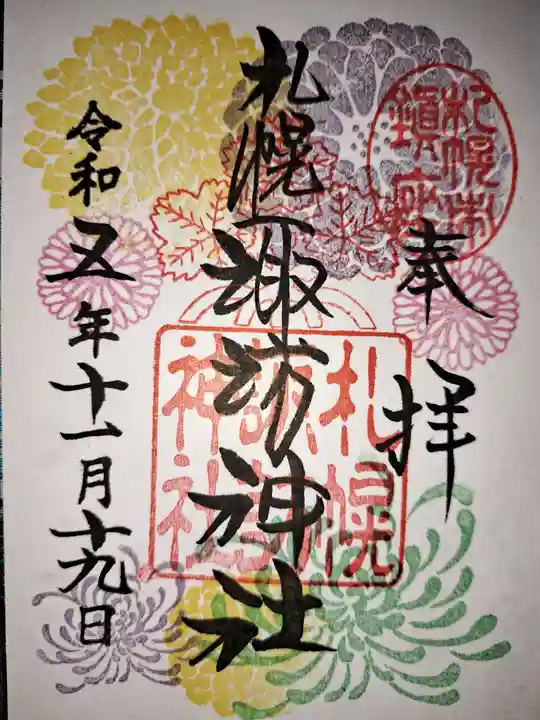 奉拝
札幌市鎮座
札幌諏訪神社
札幌諏訪神社
令和五年十一月十九日